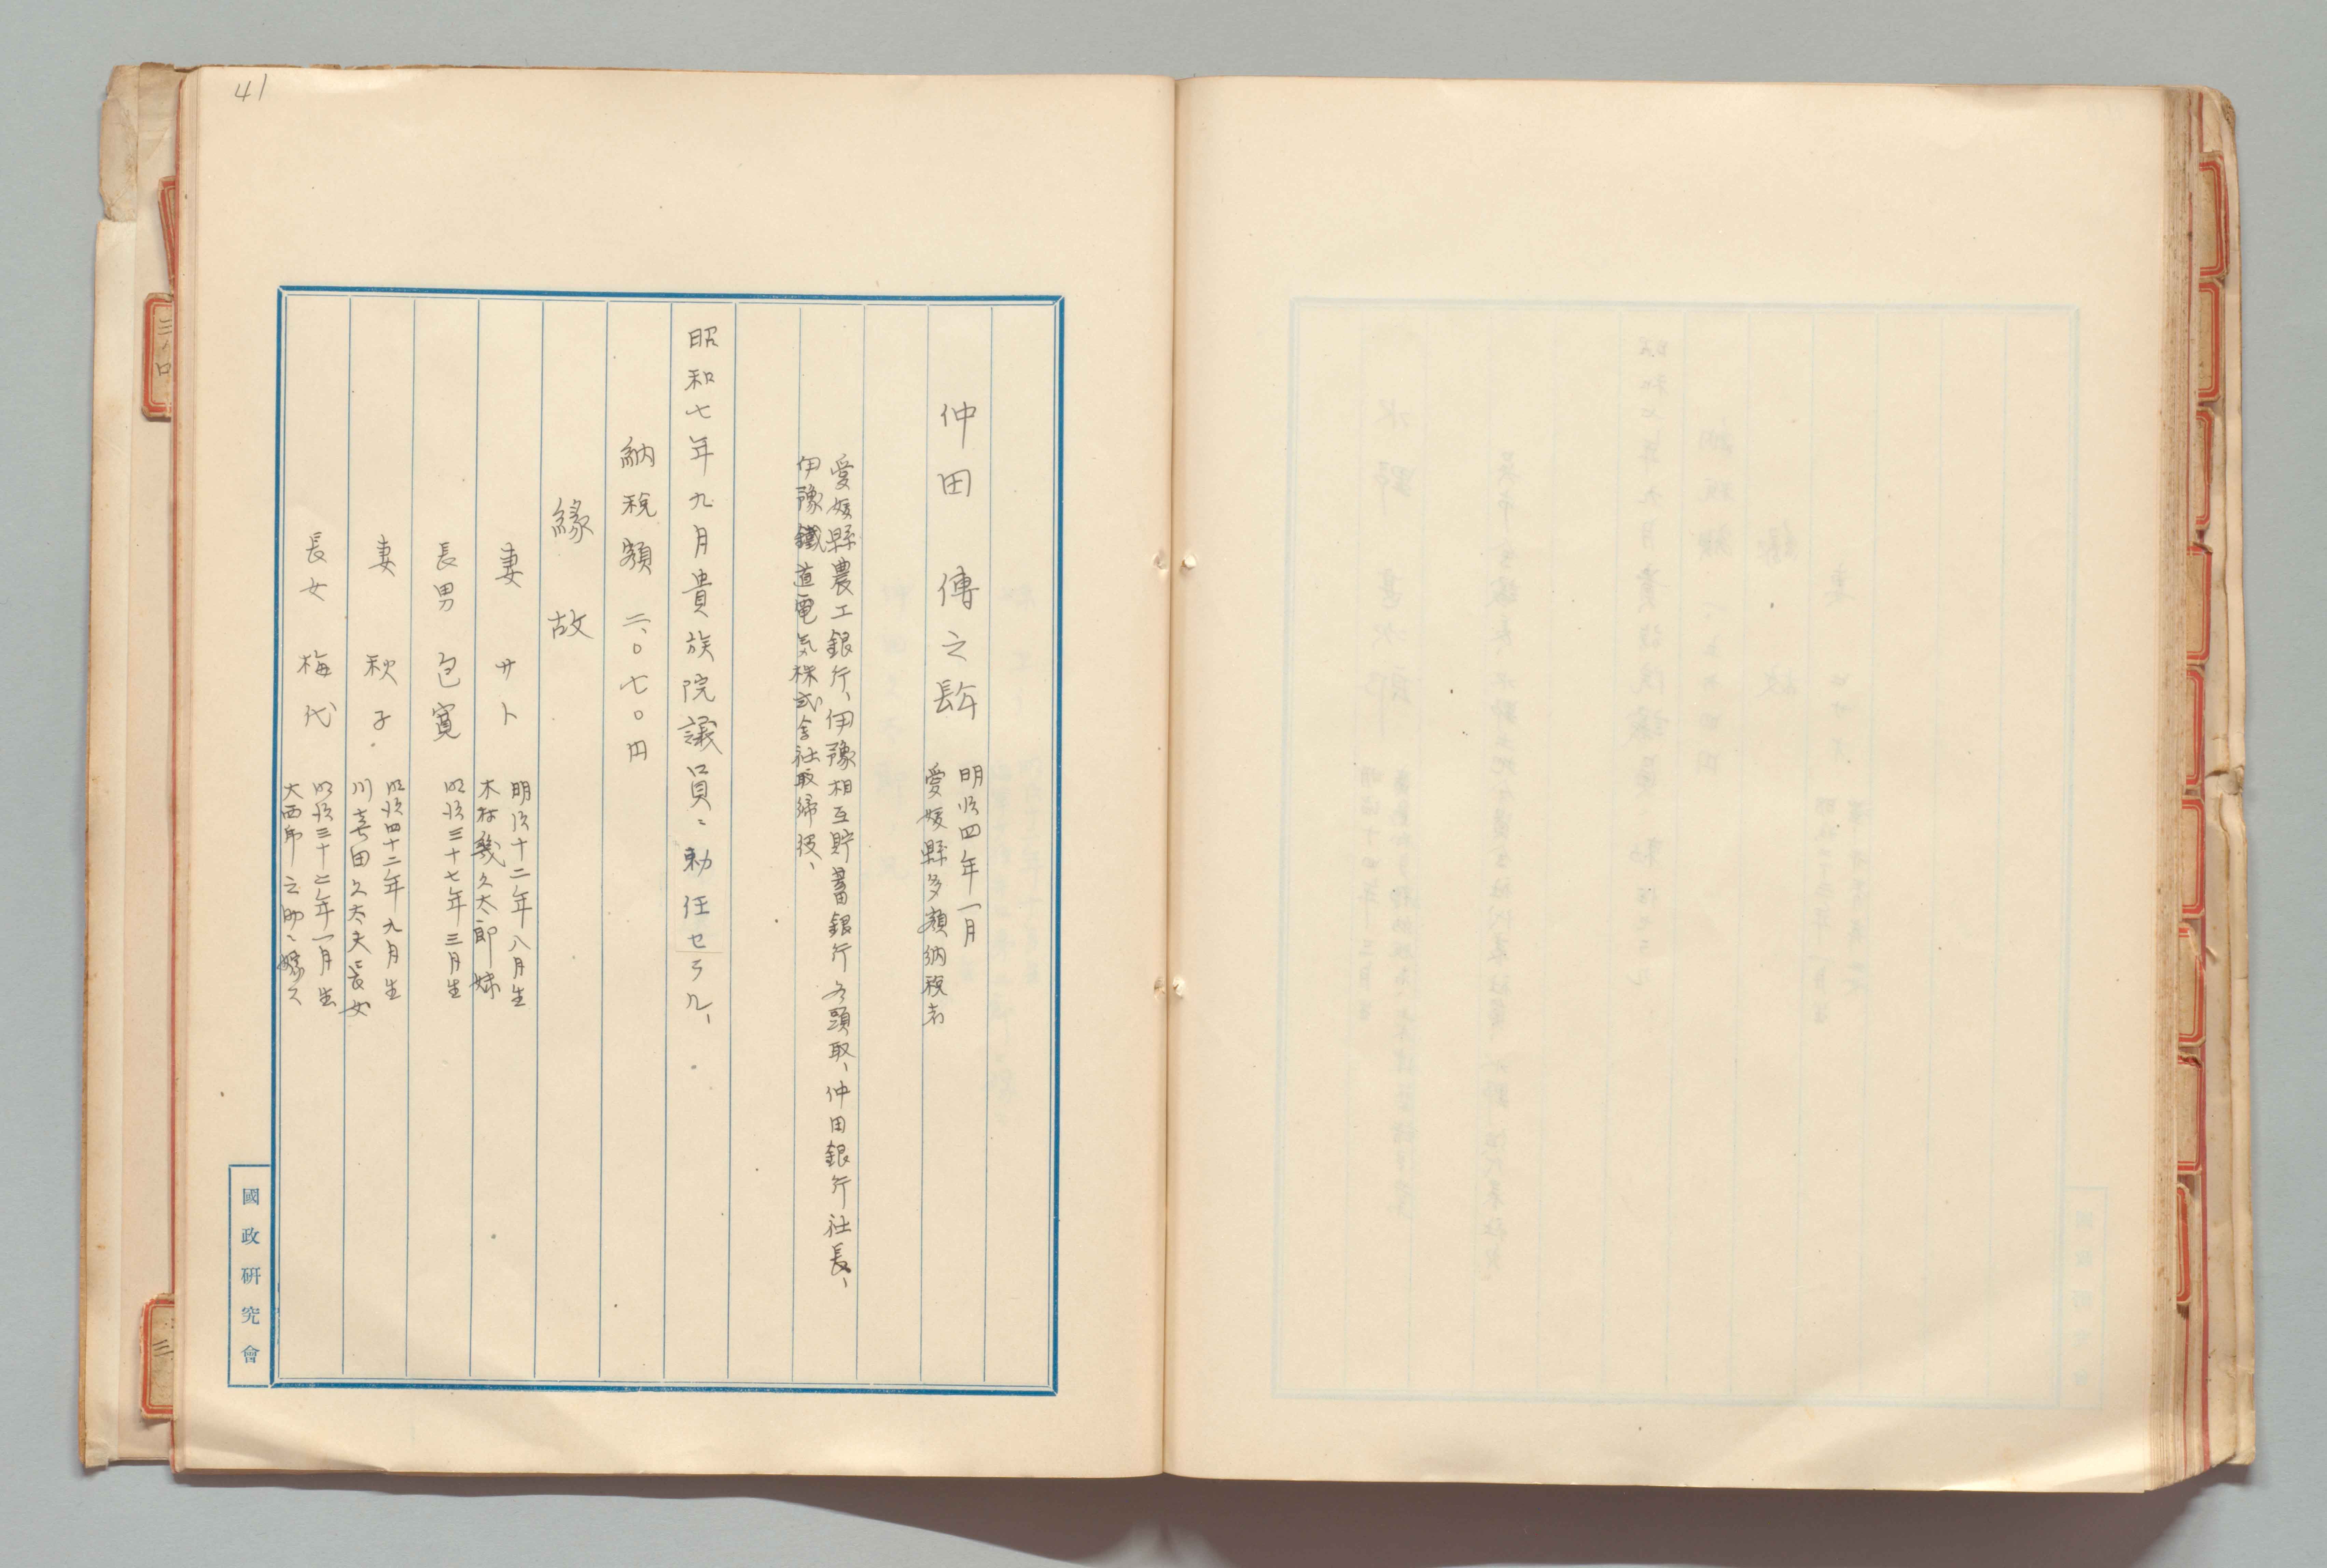 41
仲田 傳之𨱶
明治四年一月
愛媛縣多額納税者
愛媛縣農工銀行、伊豫相互貯蓄銀行各頭取、仲田銀行社長、
伊豫鐵道電気株式会社取締役、
昭和七年九月貴族院議員ニ勅任セラル、
納税額 二、〇七〇円
緣故
妻 サト
明治十二年八月生
木村幾久太郎妹
長男 包寛
明治三十七年三月生
妻 秋子
明治四十二年九月生
川喜田久太夫長女
長女 梅代
明治三十二年一月生
大西 之助ニ嫁ス
國政研究會
三ノ口
三